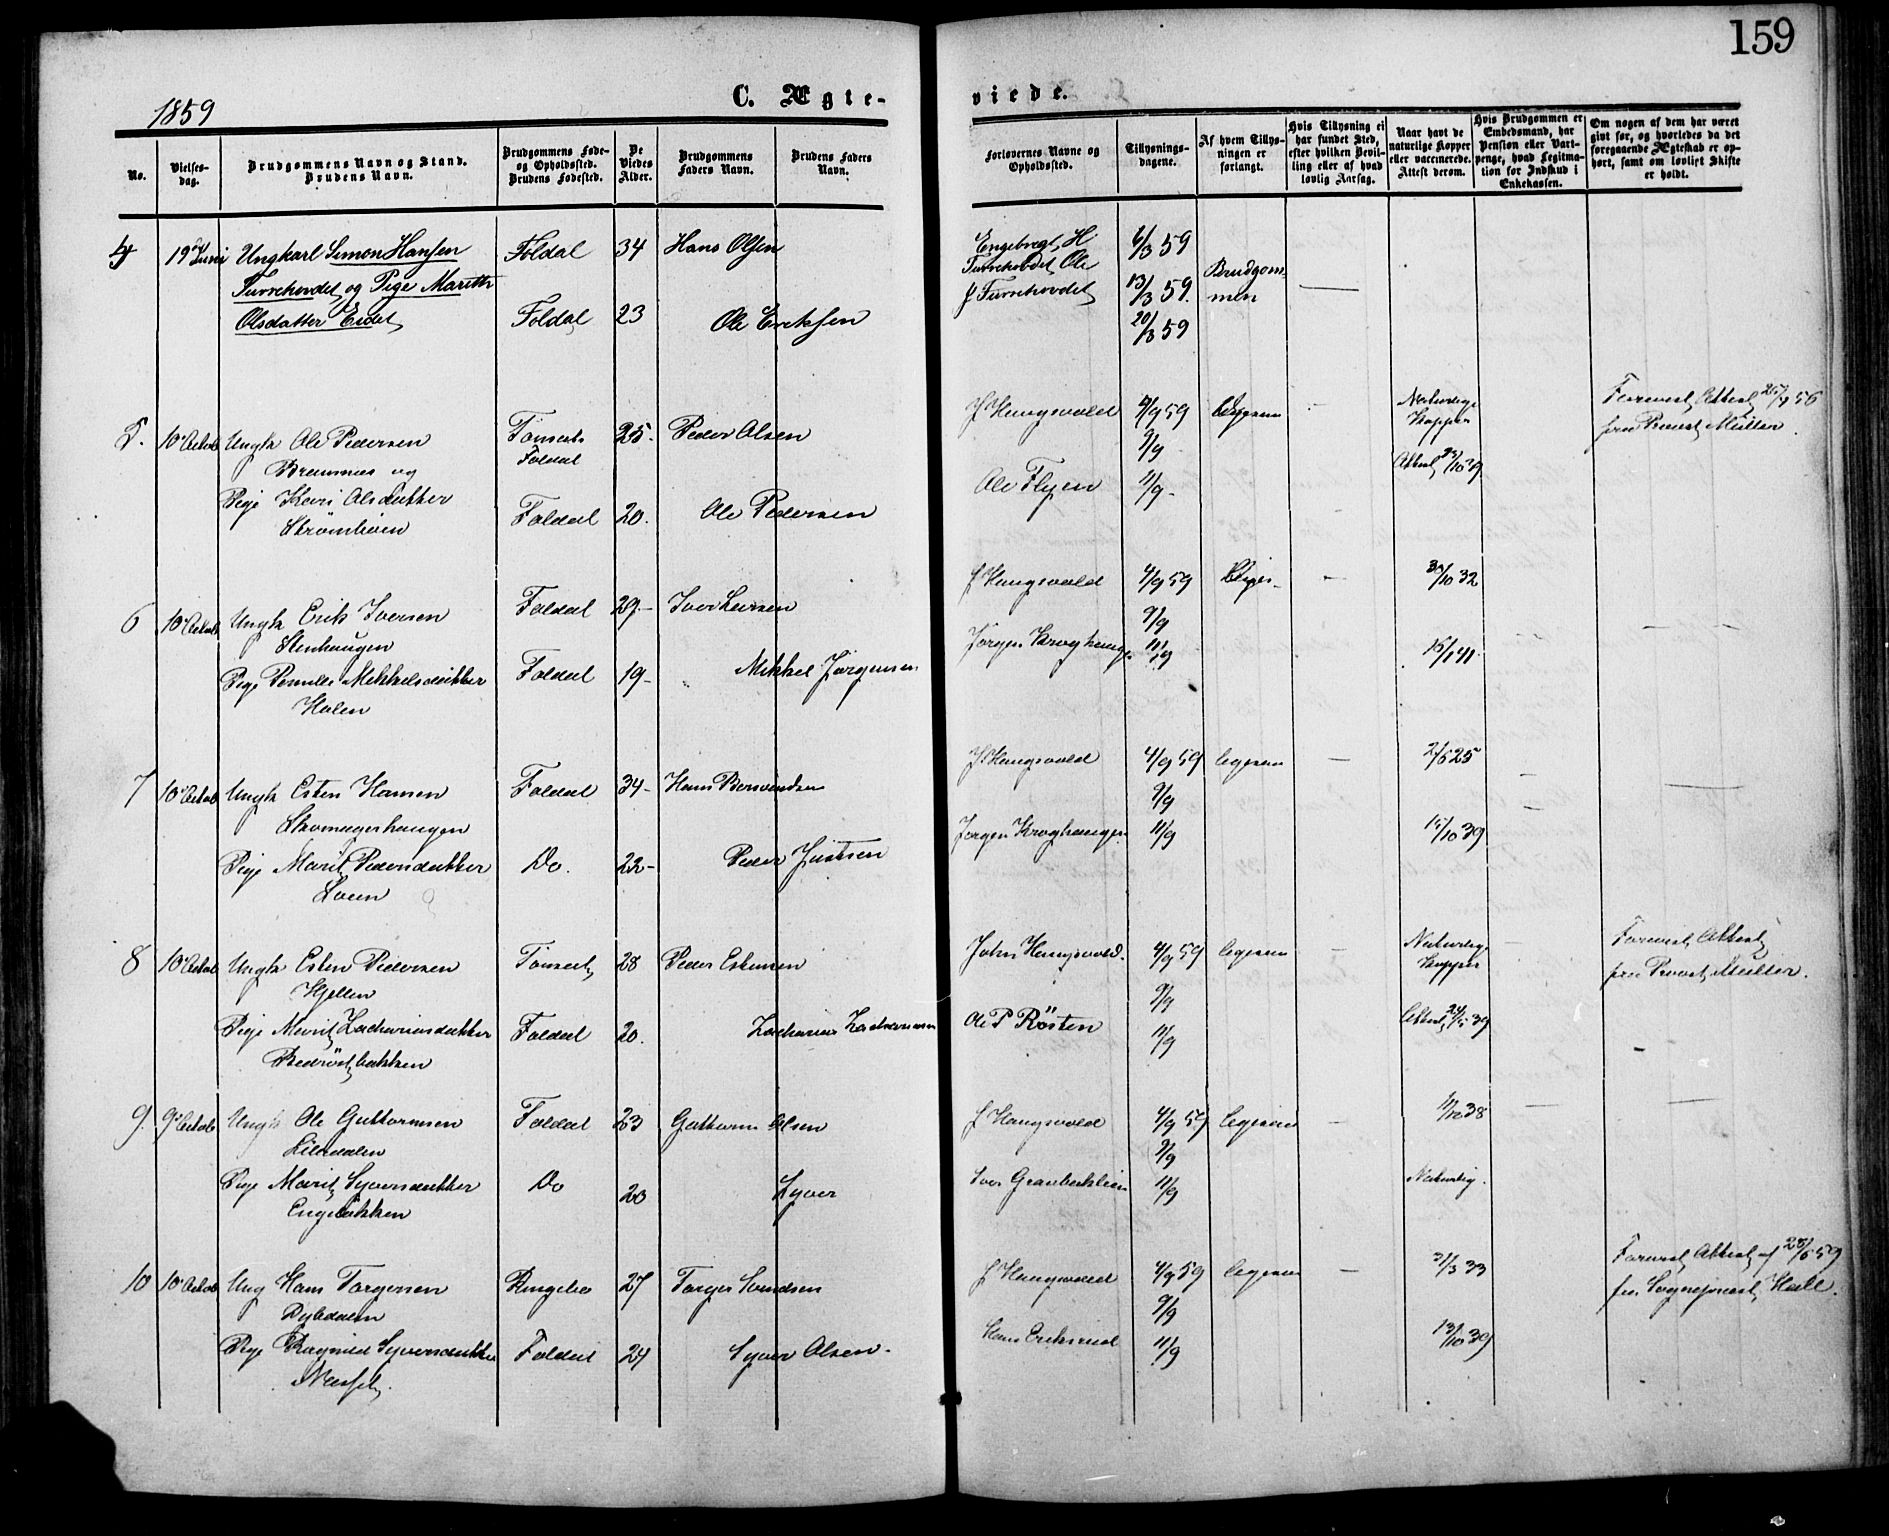 159
1859
C. Ægte-
viede.
No.
Vielses-
dag.
Brudgommens Navn og Stand.
Brudens Navn.
Brudgommens Føde-
og Opholdssted.
Brudens Fødested.
De
Viedes
Alder.
Brudgommens
Faders Navn.
Brudens Faders
Navn.
Forlovernes Navne og
Opholdssted.
Tillysnings-
dagene.
Af hvem Tillys-
ningen er
forlangt.
Hvis Tillysning ei
har fundet Sted,
efter hvilken Bevil-
ling eller af hvad
lovlig Aarsag.
Naar havt de
naturlige Kopper
eller vaccinerede.
Attest derom.
Hvis Brudgommen er
Embedsmand, har
Pension eller Vart-
penge, hvad Legitima-
tion for Indskud i
Enkekassen.
Om nogen af dem har været
gift før, og hvorledes da det
foregaaende Ægteskab er op-
hørt, samt om lovligt Skifte
er holdt.
4 19de Juni Ungkarl Simon Hansen Foldal 34 Hans Olsen Engebregt H 6/3 59
Furrehovdet og Pige Marith Furrehovdet Ole Brudgom-
Olsdatter Eidet Foldal 23 Ole Eriksen Furrehovdet 13/3 59. men
20/3 59
5. 10 Octob Ungk Ole Pedersen Tønset 25. Peder Olsen J Haugsvold 4/9 59 Naturlige Forevist Attest 26/9 56
Foldal 9/9 Kopper fra Provst Müller.
Brennmoe og
Pige Kari Olsdatter Foldal 20. Ole Pedersen Ole Flyen 11/9 Attest 23/10 39
Strömhöien
6 10 Octob Ungk Erik Iversen Foldal 29- Iver Larsen J Haugsvold 4/9 59 30/10 32
Stenhaugen 9/9
Pige Pernille Mikkelsdatter Foldal 19- Mikkel Jörgensen Jörgen Kroghaugen 11/9 15/1 41.
Holen
7 10 Octob Ungk Esten Hansen Foldal 34- Hans J Haugsvold 4/9 59 21/5 25
Skomagerhaugen 9/9
Pige Marit Pedersdatter Do. 22- Peder Justsen Jørgen Kroghaugen 11/9 15/10 39
Loen
8 10 Octob Ungk Esten Pedersen Tönset 28 Peder Estensen John Haugsvold. 4/9 59 Naturlige Forevist Attest
Hjellen 9/9 Kopper fra Provst Müller.
Pige Marit Zachariasdatter Foldal 20. Zacharias Zachariasen Ole P Rösten 11/9 Attest 24/5 39
bakken
9. 9de Octob Ungk Ole Guttormsen Foldal 23 Guttorm Olsen J Haugsvold 4/9 59 11/12 38
Liendalen 9/9
Pige Marit Syversdatter Do 20 Syver Iver Graubæklien 11/9 Naturlig.
Engebakken
10 10 Octob Ung Hans Torgersen Ringebo 27 Torger Svendsen J Haugsvold 4/9 59 31/3 33 Forevist Attest af 28/5 59
Dybdalen 9/9 fra Sognepræst Hall.
Pige Ragnild Syversdatter Foldal 24 Syver Olsen. Hans Eriksrud 11/9 13/10 39